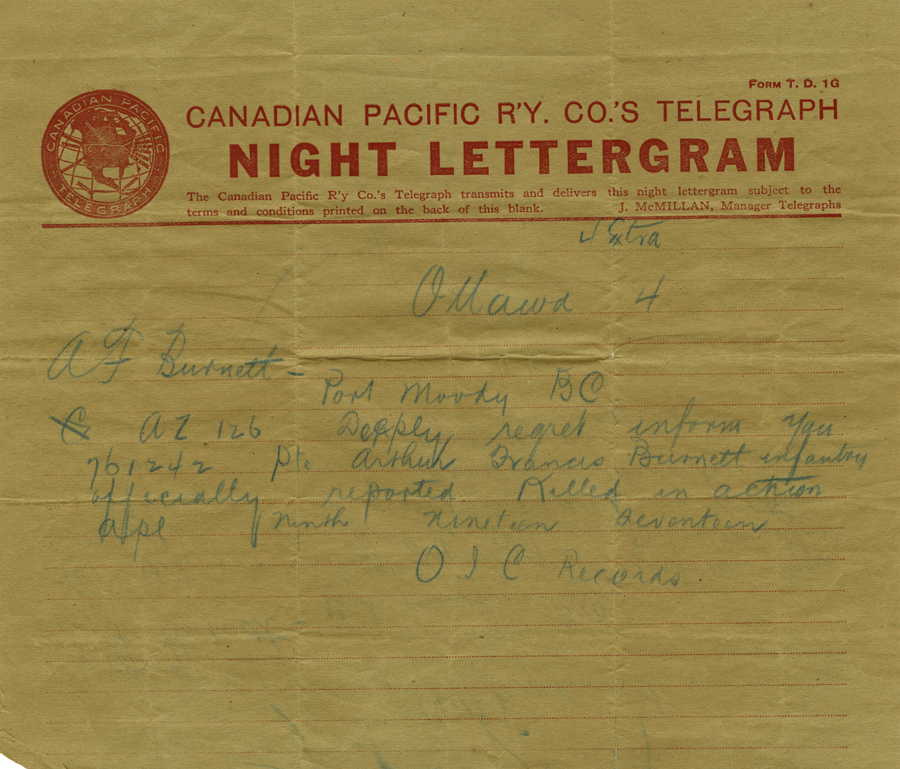 FORM T. D. 1G
CANADIAN PACIFIC R'Y. CO.'S TELEGRAPH
NIGHT LETTERGRAM
The Canadian Pacific R'y Co.'s Telegraph transmits and delivers this night lettergram subject to the
terms and conditions printed on the back of this blank. J. McMILLAN, Manager Telegraphs
CANADIAN PACIFIC
TELEGRAPH
Extra
Ottawa 4
A F Burnett -
Port Moody BC
AZ 126 Deeply regret inform you
761242 Pte Arthur Francis Burnett infantry
officially reported Killed in action
Apl Ninth Nineteen Seventeen
O I C Records